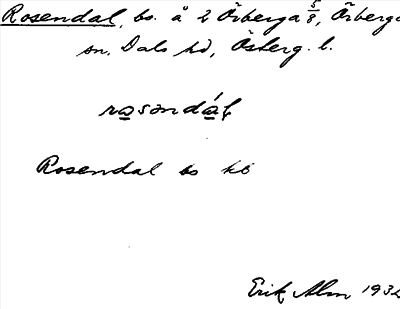 Rosendal, bs. å 2 Örberga 5/8, Örberga
sn. Dals hd, Österg. l.
rosendal
Rosendal bs kb
Erik Alm 1932